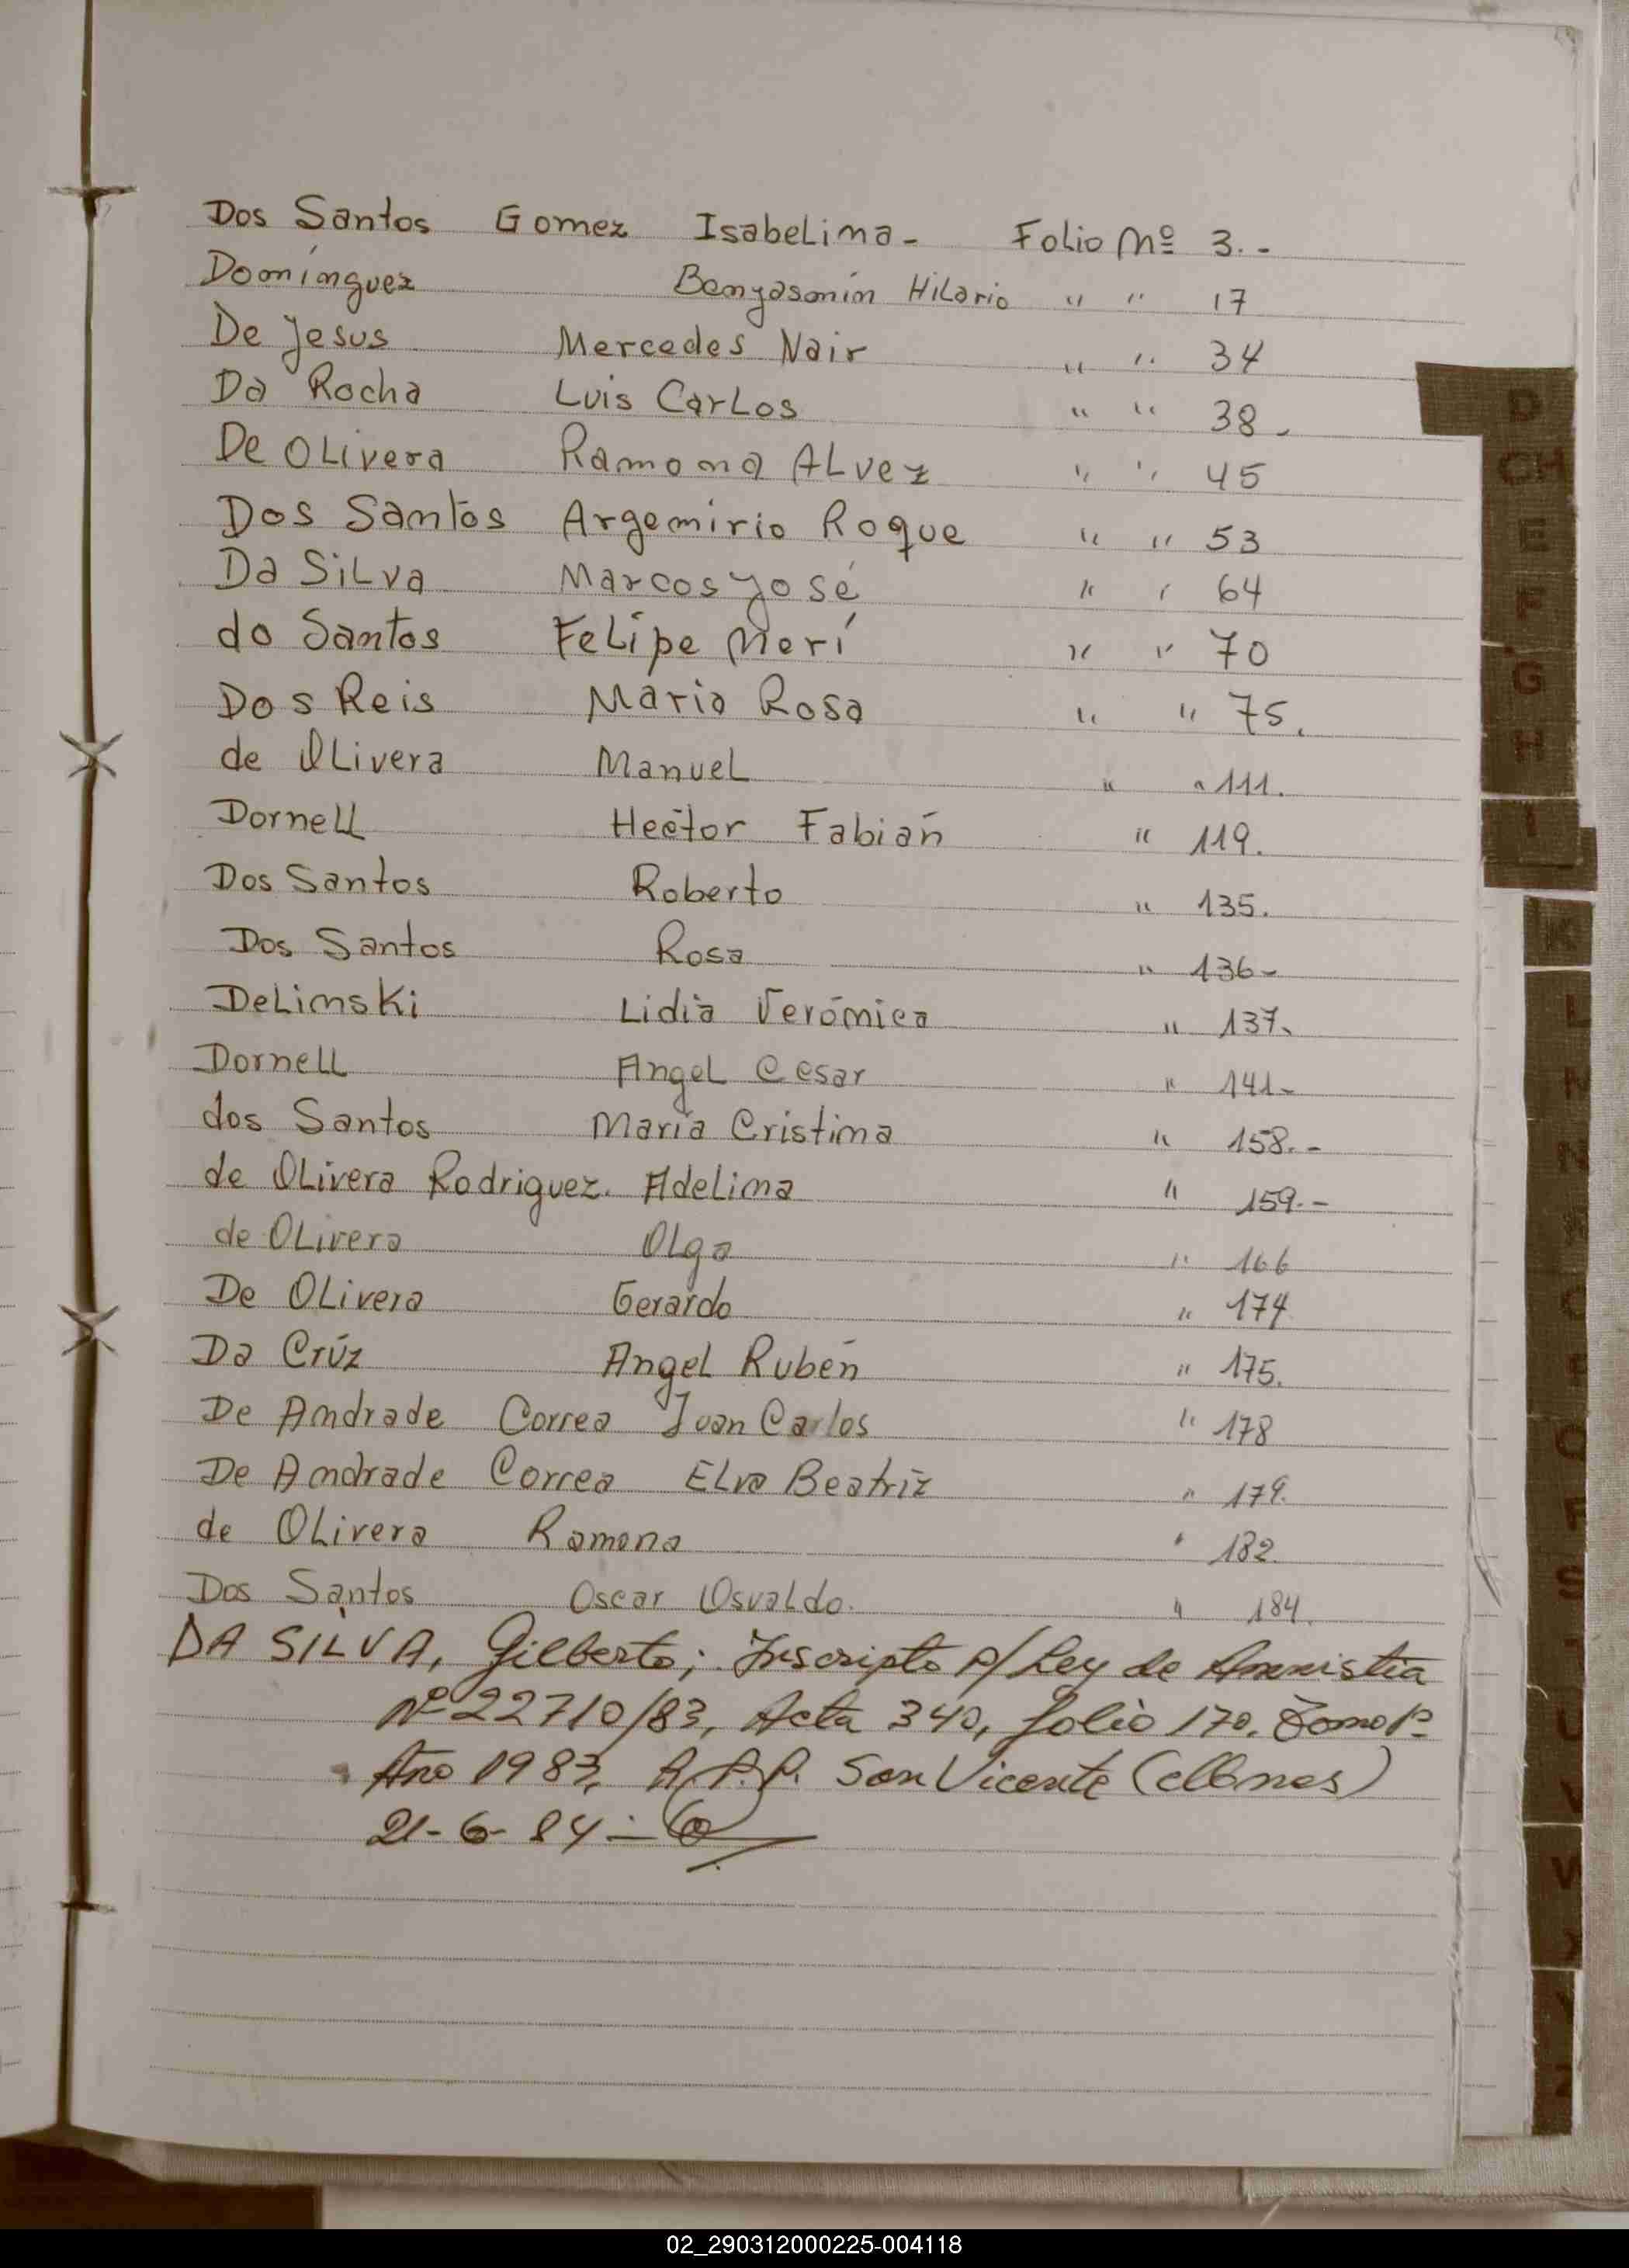 Dos Santos Gomez Isabelina - Folio Nº 3.-
Domínguez Benyasmín Hilario " " 17
De Jesus Mercedes Nair " " 34
Da Rocha Luis Carlos " " 38.
De Olivera Ramona Alvez " " 45
Dos Santos Argemirio Roque " " 53
Da Silva Marcos José " " 64
do Santos Felipe Nerí " " 70
Dos Reis Maria Rosa " " 75.
de Olivera Manuel " " 111.
Dornell Hector Fabián " 119.
Dos Santos Roberto " 135.
Dos Santos Rosa " 136-
Delinski Lidia Verónica " 137.
Dornell Angel Cesar " 141-
dos Santos María Cristina " 158.-
de Olivera Rodriguez. Adelina " 159.-
de Olivera Olga " 166
De Olivera Gerardo " 174
Da Crúz Angel Rubén " 175.
De Andrade Correa Juan Carlos " 178
De Andrade Correa Elva Beatriz " 179.
de Olivera Ramona " 182
Dos Santos Oscar Osvaldo. " 184.
DA SILVA, Gilberto; Inscripto p/Ley de Amnistia
Nº 22710/83, Acta 340, folio 170. Tomo 1º
Año 1983, R.P.P. San Vicente (Mnes)
21-6-84
D
CH
E
F
G
H
I
K
L
02_290312000225-004118